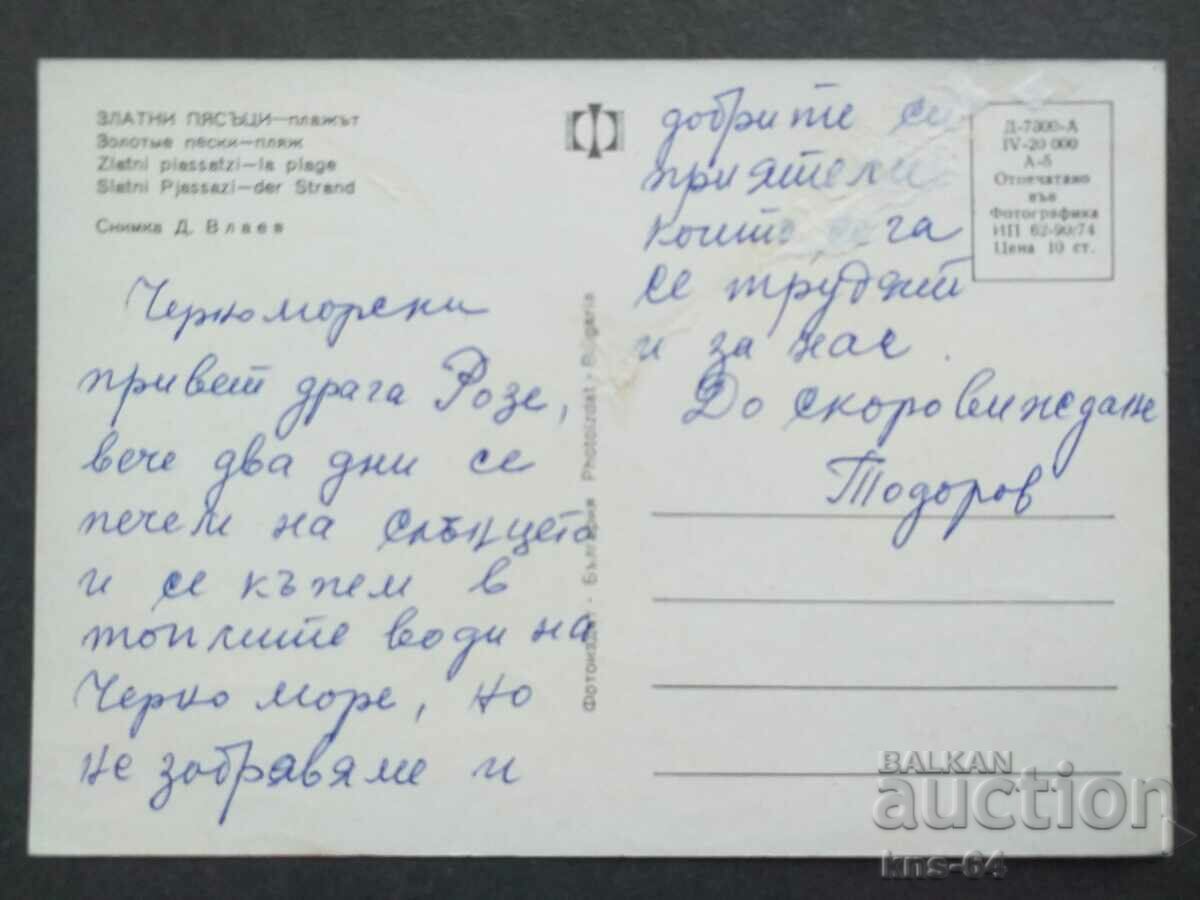 ЗЛАТНИ ПЯСЪЦИ—плажът
Золотые пески—пляж
Zlatni piassatzi—la plage
Slatni Pjassazi—der Strand
Снимка Д. Влаев
Черноморски
привет драга Розе,
вече два дни се
печем на слънцето
и се къпем в
топлите води на
Черно море, но
не забравяме и
добрите си
приятели
които сега
се трудят
и за нас.
До скоро виждане
Тодоров
Д-7300-А
IV-20 000
А-5
Отпечатано
във
Фотографика
ИП 62-90/74
Цена 10 ст.
Фотоиздат - България Photoizdat - Bulgaria
BALKAN
auction
kns-64